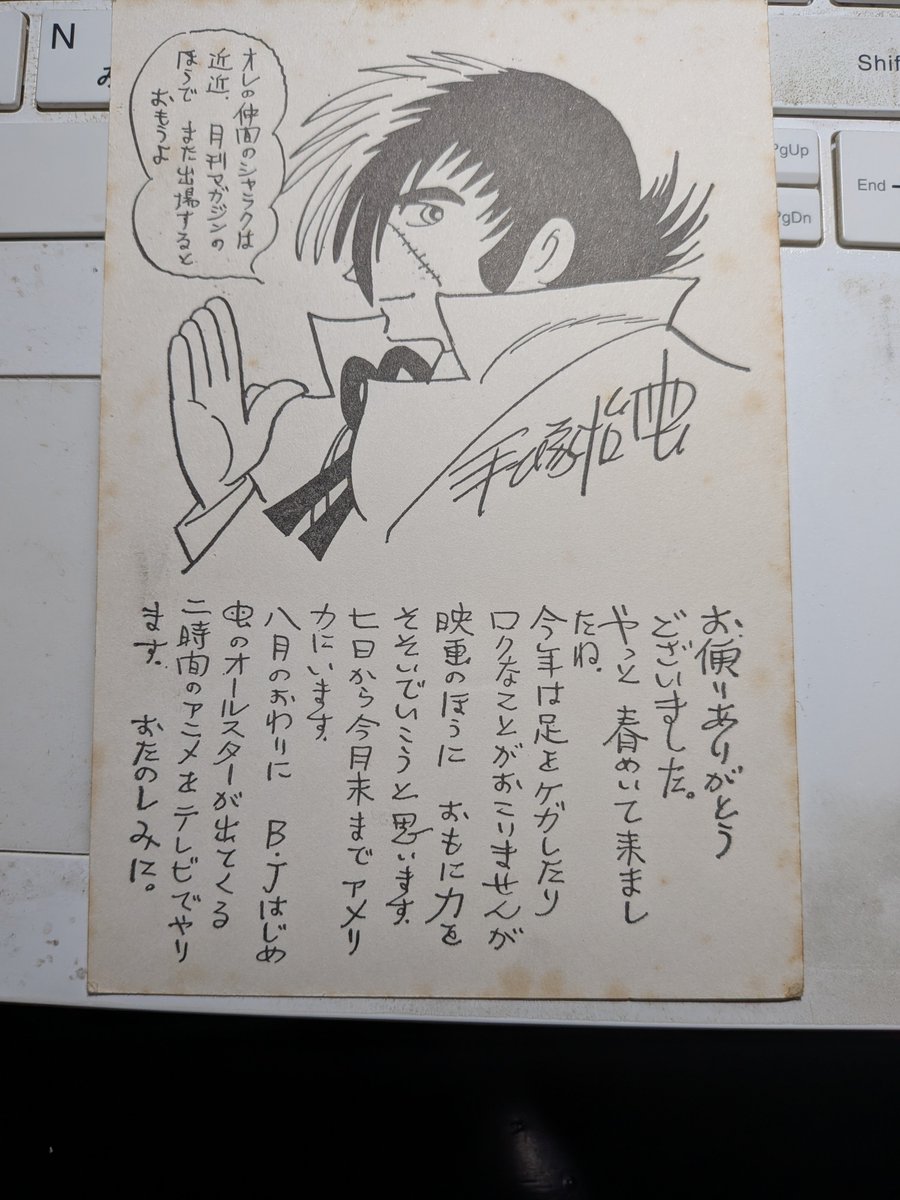 オレの仲間のシャラクは
近近、月刊マガジンの
ほうで また出場すると
おもうよ
手塚治虫
お便りありがとう
ございました。
やっと 春めいて来まし
たね.
今年は足をケガしたり
ロクなことがおこりませんが
映画のほうに おもに力を
そそいでいこうと思います.
七日から今月末まで アメリ
カにいます.
八月のおわりに B・Jはじめ
虫のオールスターが出てくる
二時間のアニメをテレビでやり
ます. おたのしみに。
N
Shif
PgUp
PgDn
End